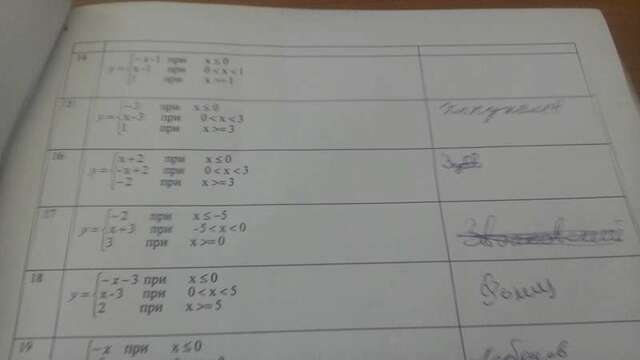 14 y = { -x-1 при x≤0
x-1 при 0<x<1
при x>=1
15 y = { -3 при x≤0
x-3 при 0<x<3
1 при x>=3
16 y = { x+2 при x≤0
-x+2 при 0<x<3
-2 при x>=3
17 y = { -2 при x≤-5
x+3 при -5<x<0
3 при x>=0
18 y = { -x-3 при x≤0
x-3 при 0<x<5
2 при x>=5
19 { -x при x≤0